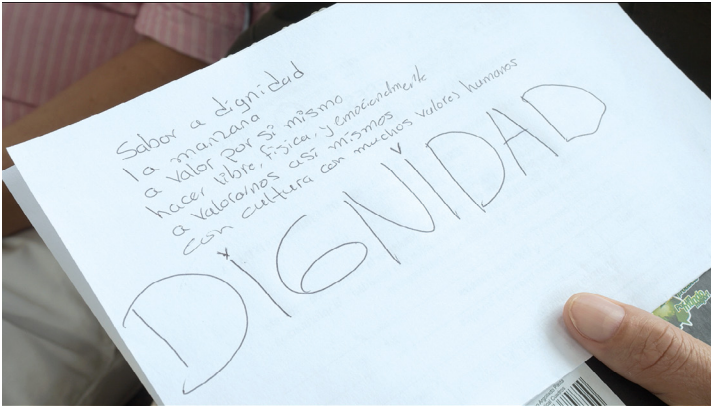 Sabor a dignidad
la manzana
a valor por si mismo
hacer libre, fisica, y emocionalmente
a valorarnos asi mismos
con cultura con muchos valores humanos
DIGNIDAD